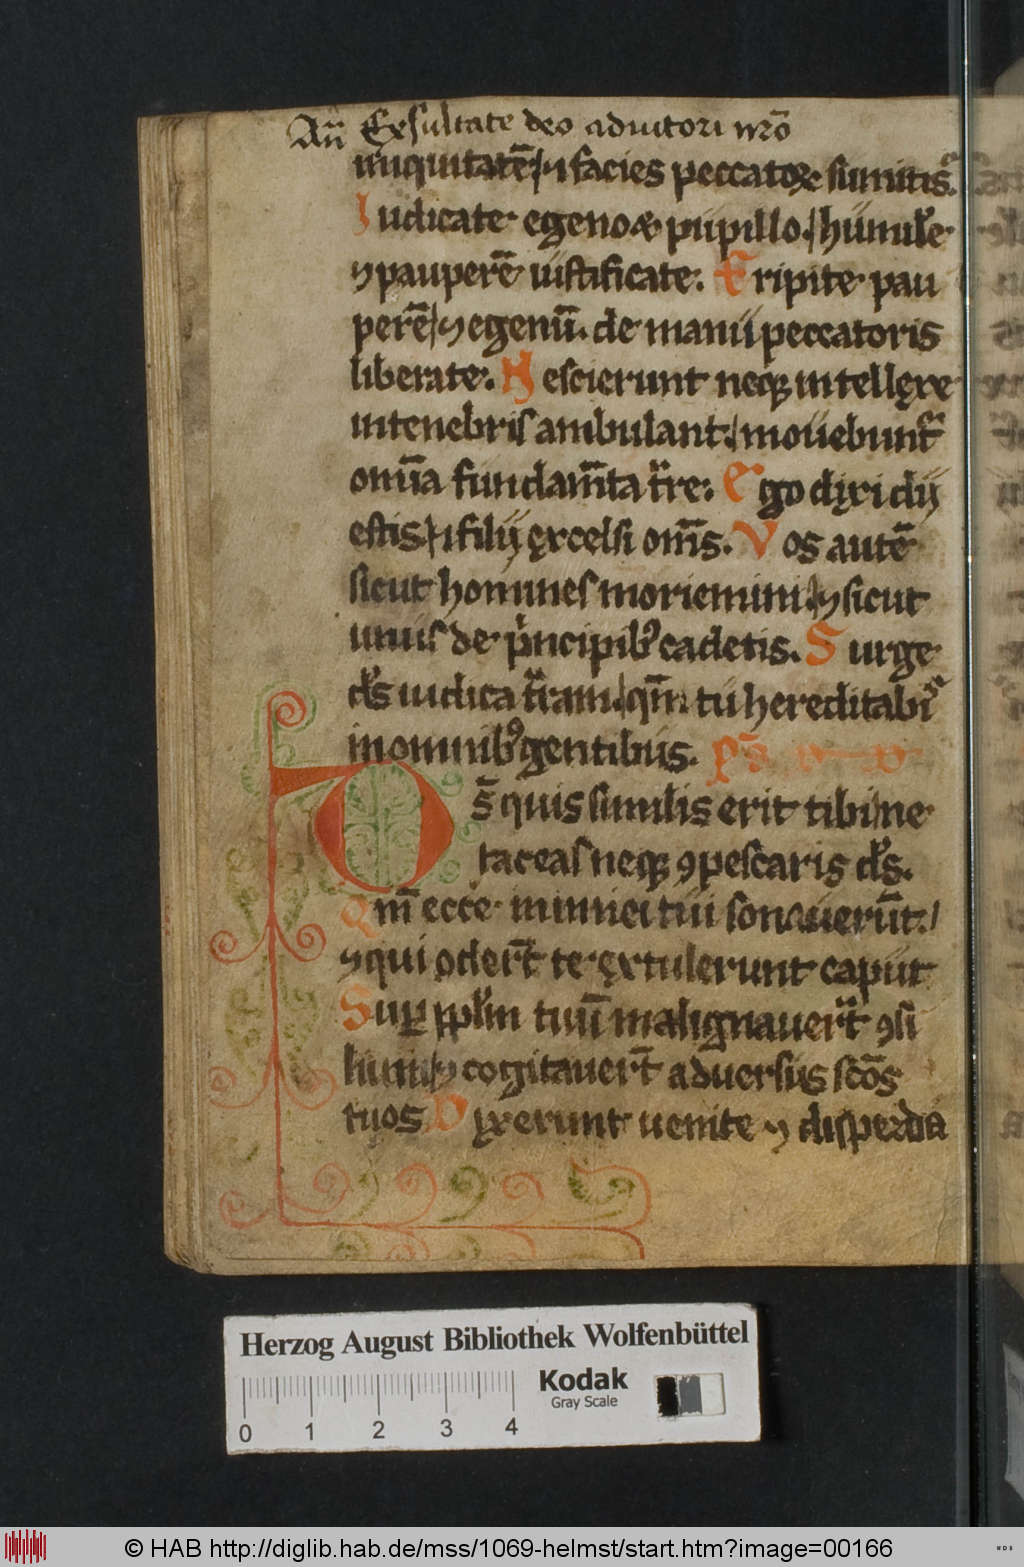 An̄ Exsultate deo adiutori nr̄o
iniquitatē ⁊ facies peccatoꝝ sumitis.
Iudicate egeno ⁊ pupillo. humilē
⁊ pauperē iustificate. Eripite pau
perē ⁊ egenū. de manu peccatoris
liberate. Nescierunt neqꝫ intellexe
in tenebris ambulant. mouebunt᷑
om̄ia fundam̄ta tr̄re. Ego dixi dij
estis. ⁊ filij excelsi om̄s. Vos autē
sicut homines moriemini. ⁊ sicut
unus de p'ncipibꝰ cadetis. Surge
ds̄ iudica tr̄ram. qm̄ tu hereditabis
in omnibꝰ gentibus. ps̄
Ds̄ quis similis erit tibi ne
taceas neqꝫ ꝯpescaris ds̄.
Qm̄ ecce inimici tui sonauerūt.
⁊ qui oder̄t te extulerunt caput
Suꝑ ppl̄m tuū malignauer̄t ꝯsi
lium. ⁊ cogitauer̄t aduersus scōs
tuos Dixerunt uenite ⁊ disperda
Herzog August Bibliothek Wolfenbüttel
Kodak
Gray Scale
0 1 2 3 4
© HAB http://diglib.hab.de/mss/1069-helmst/start.htm?image=00166